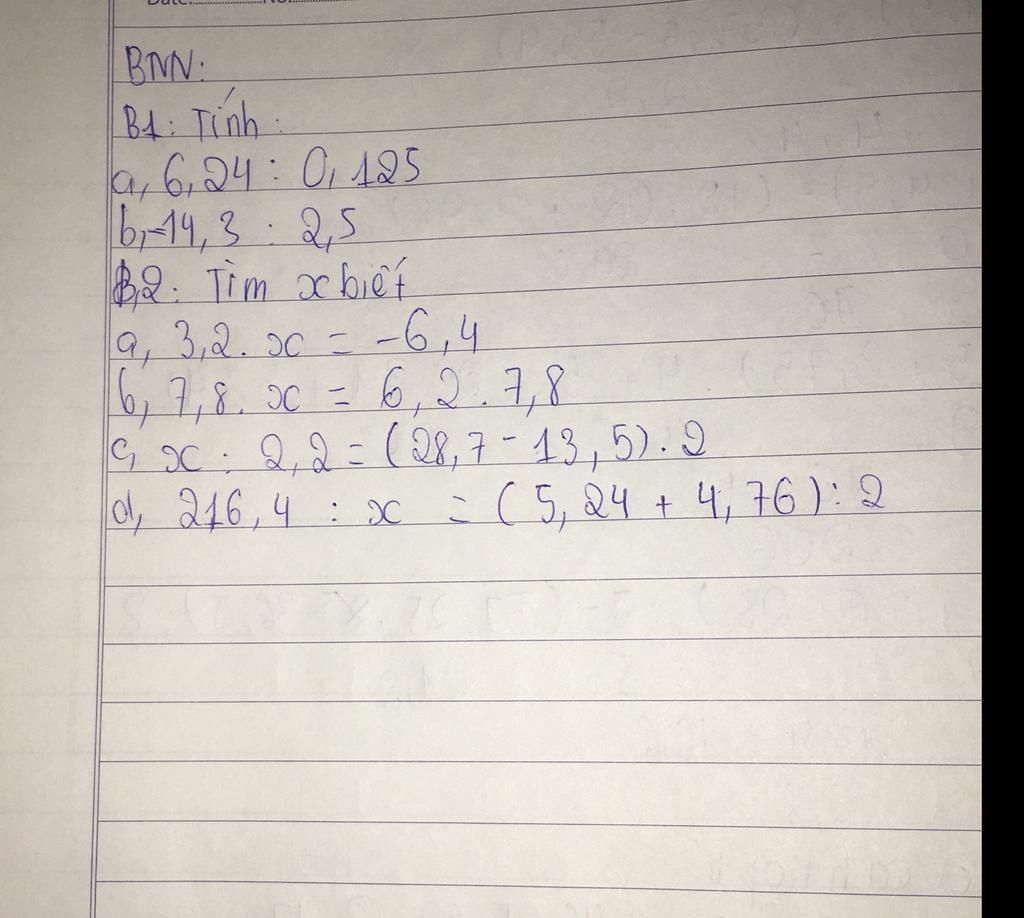 BNN:
B1: Tính:
a, 6,24 : 0,125
b, -14,3 : 2,5
B2: Tìm x biết
a, 3,2. x = -6,4
b, 7,8. x = 6,2. 7,8
c, x : 2,2 = (28,7 - 13,5). 2
d, 216,4 : x = (5,24 + 4,76) : 2